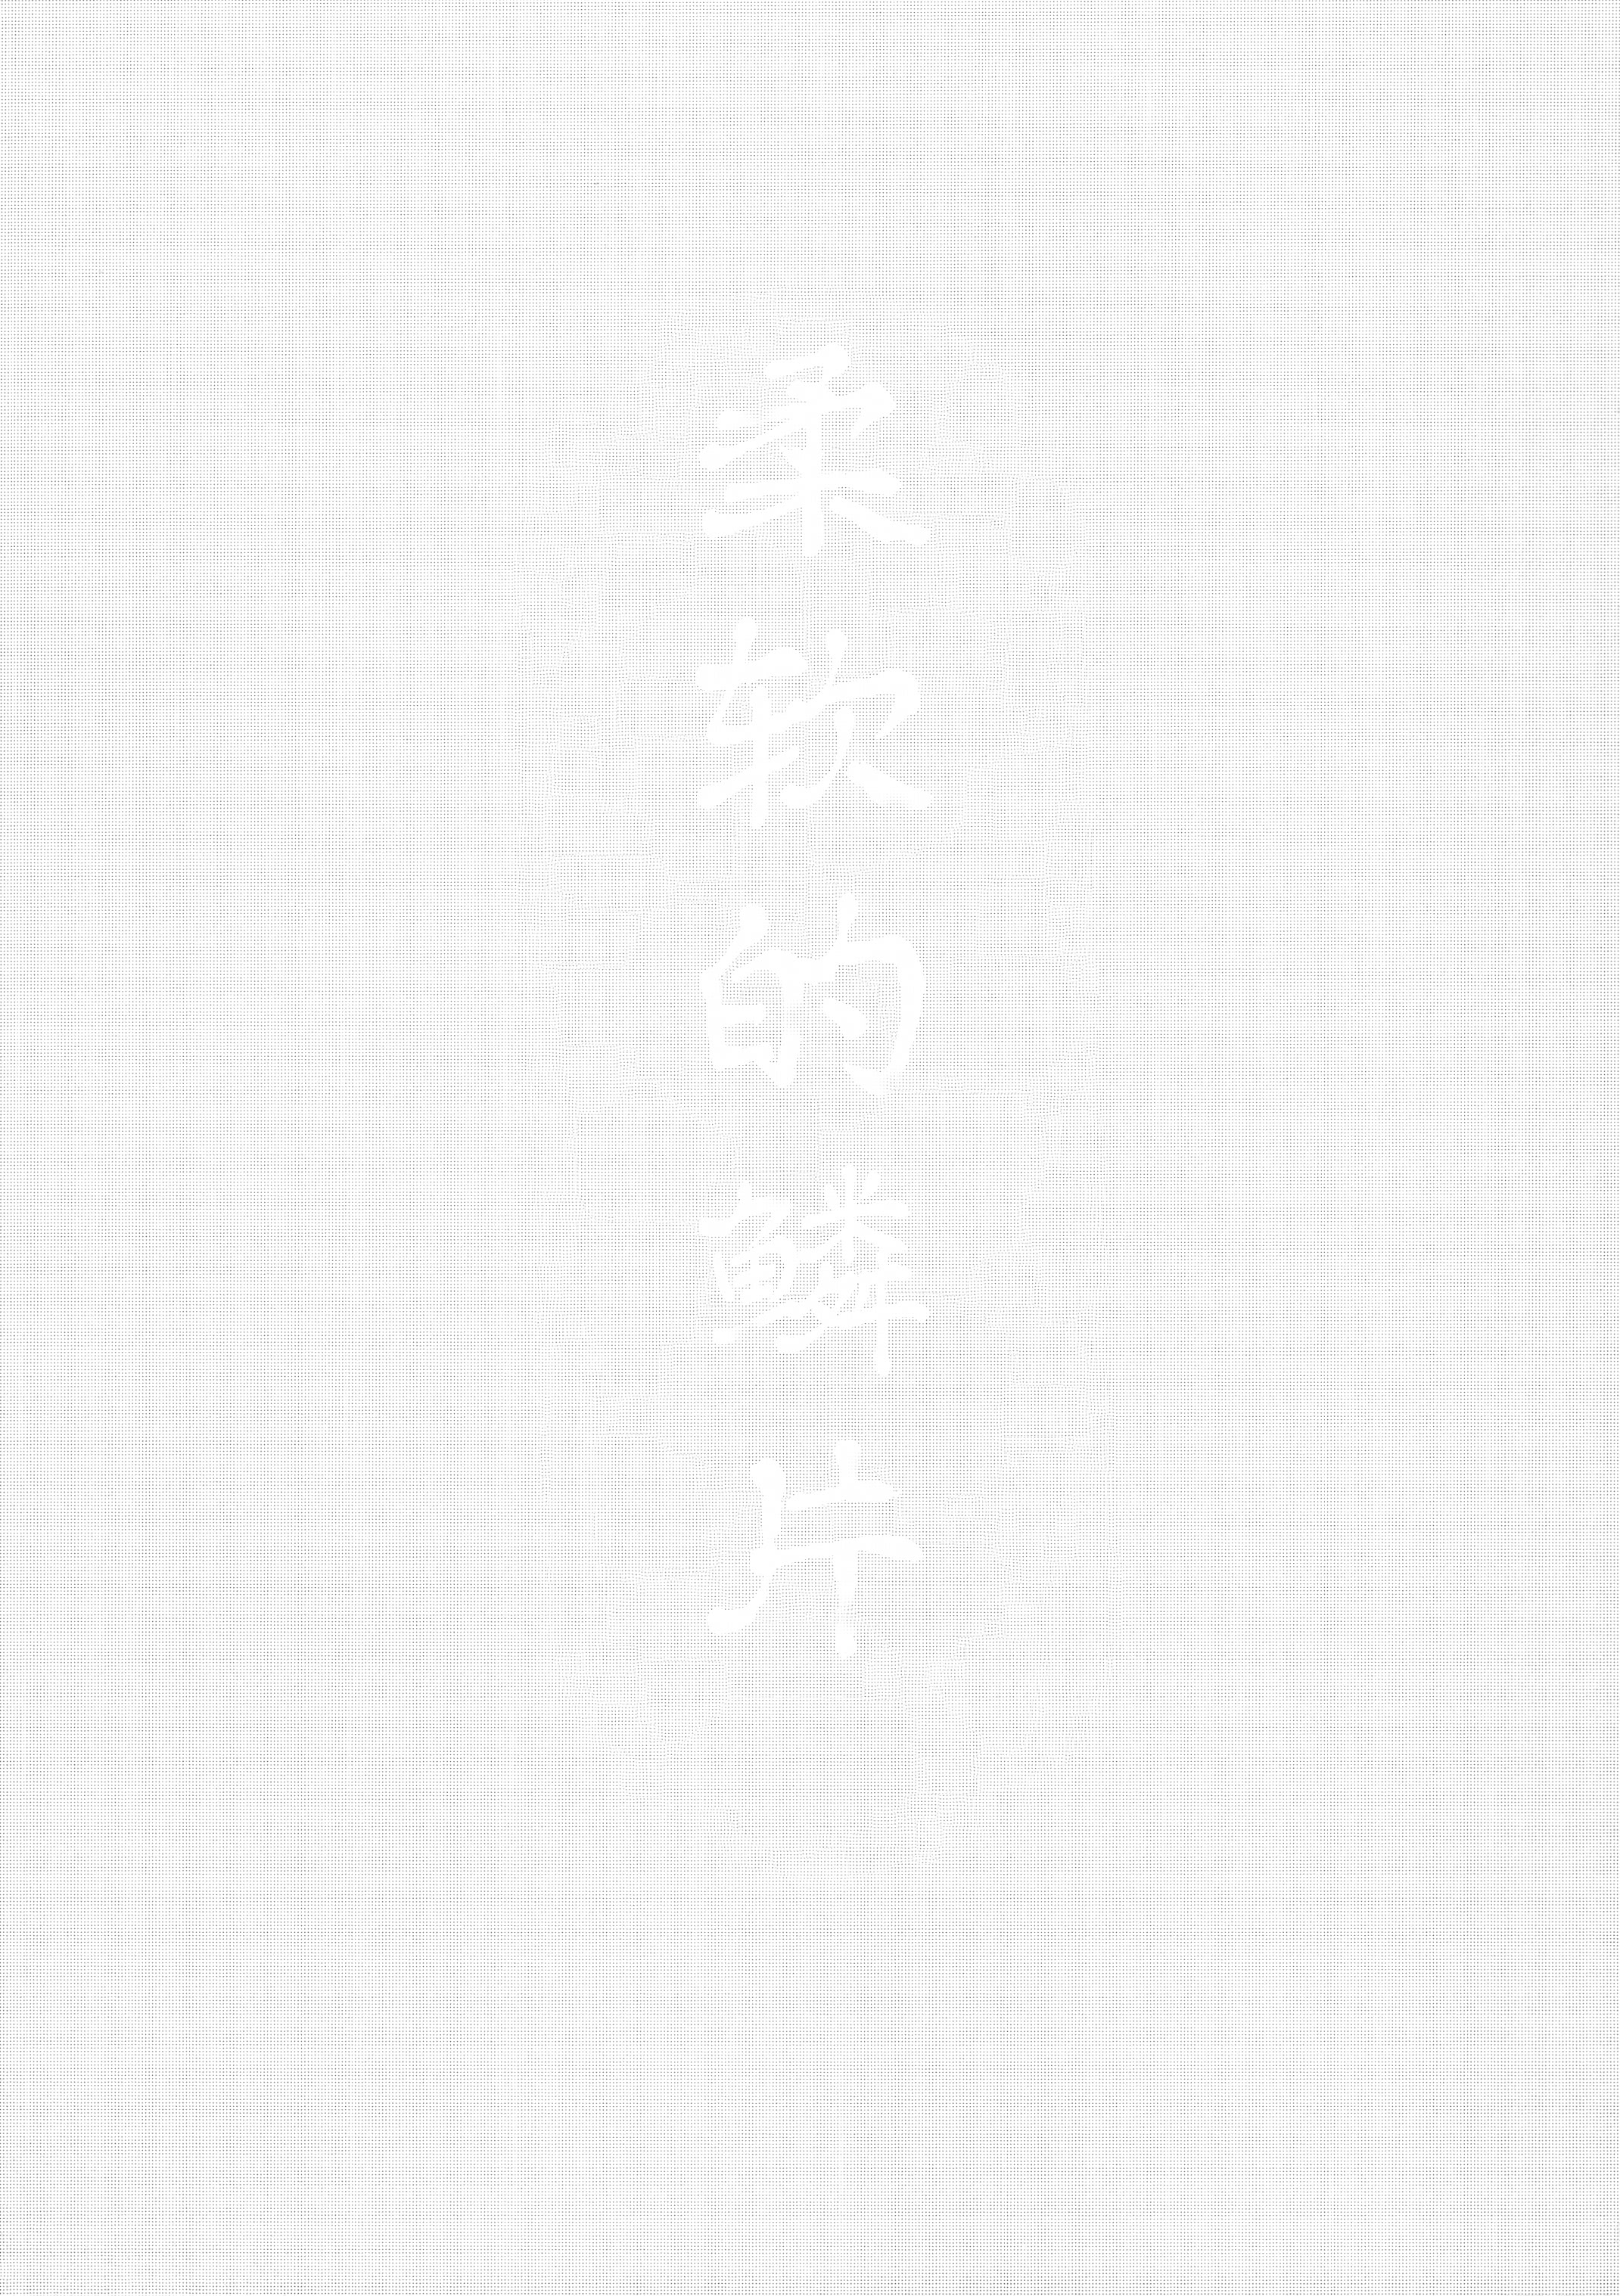 柔软的鳞片